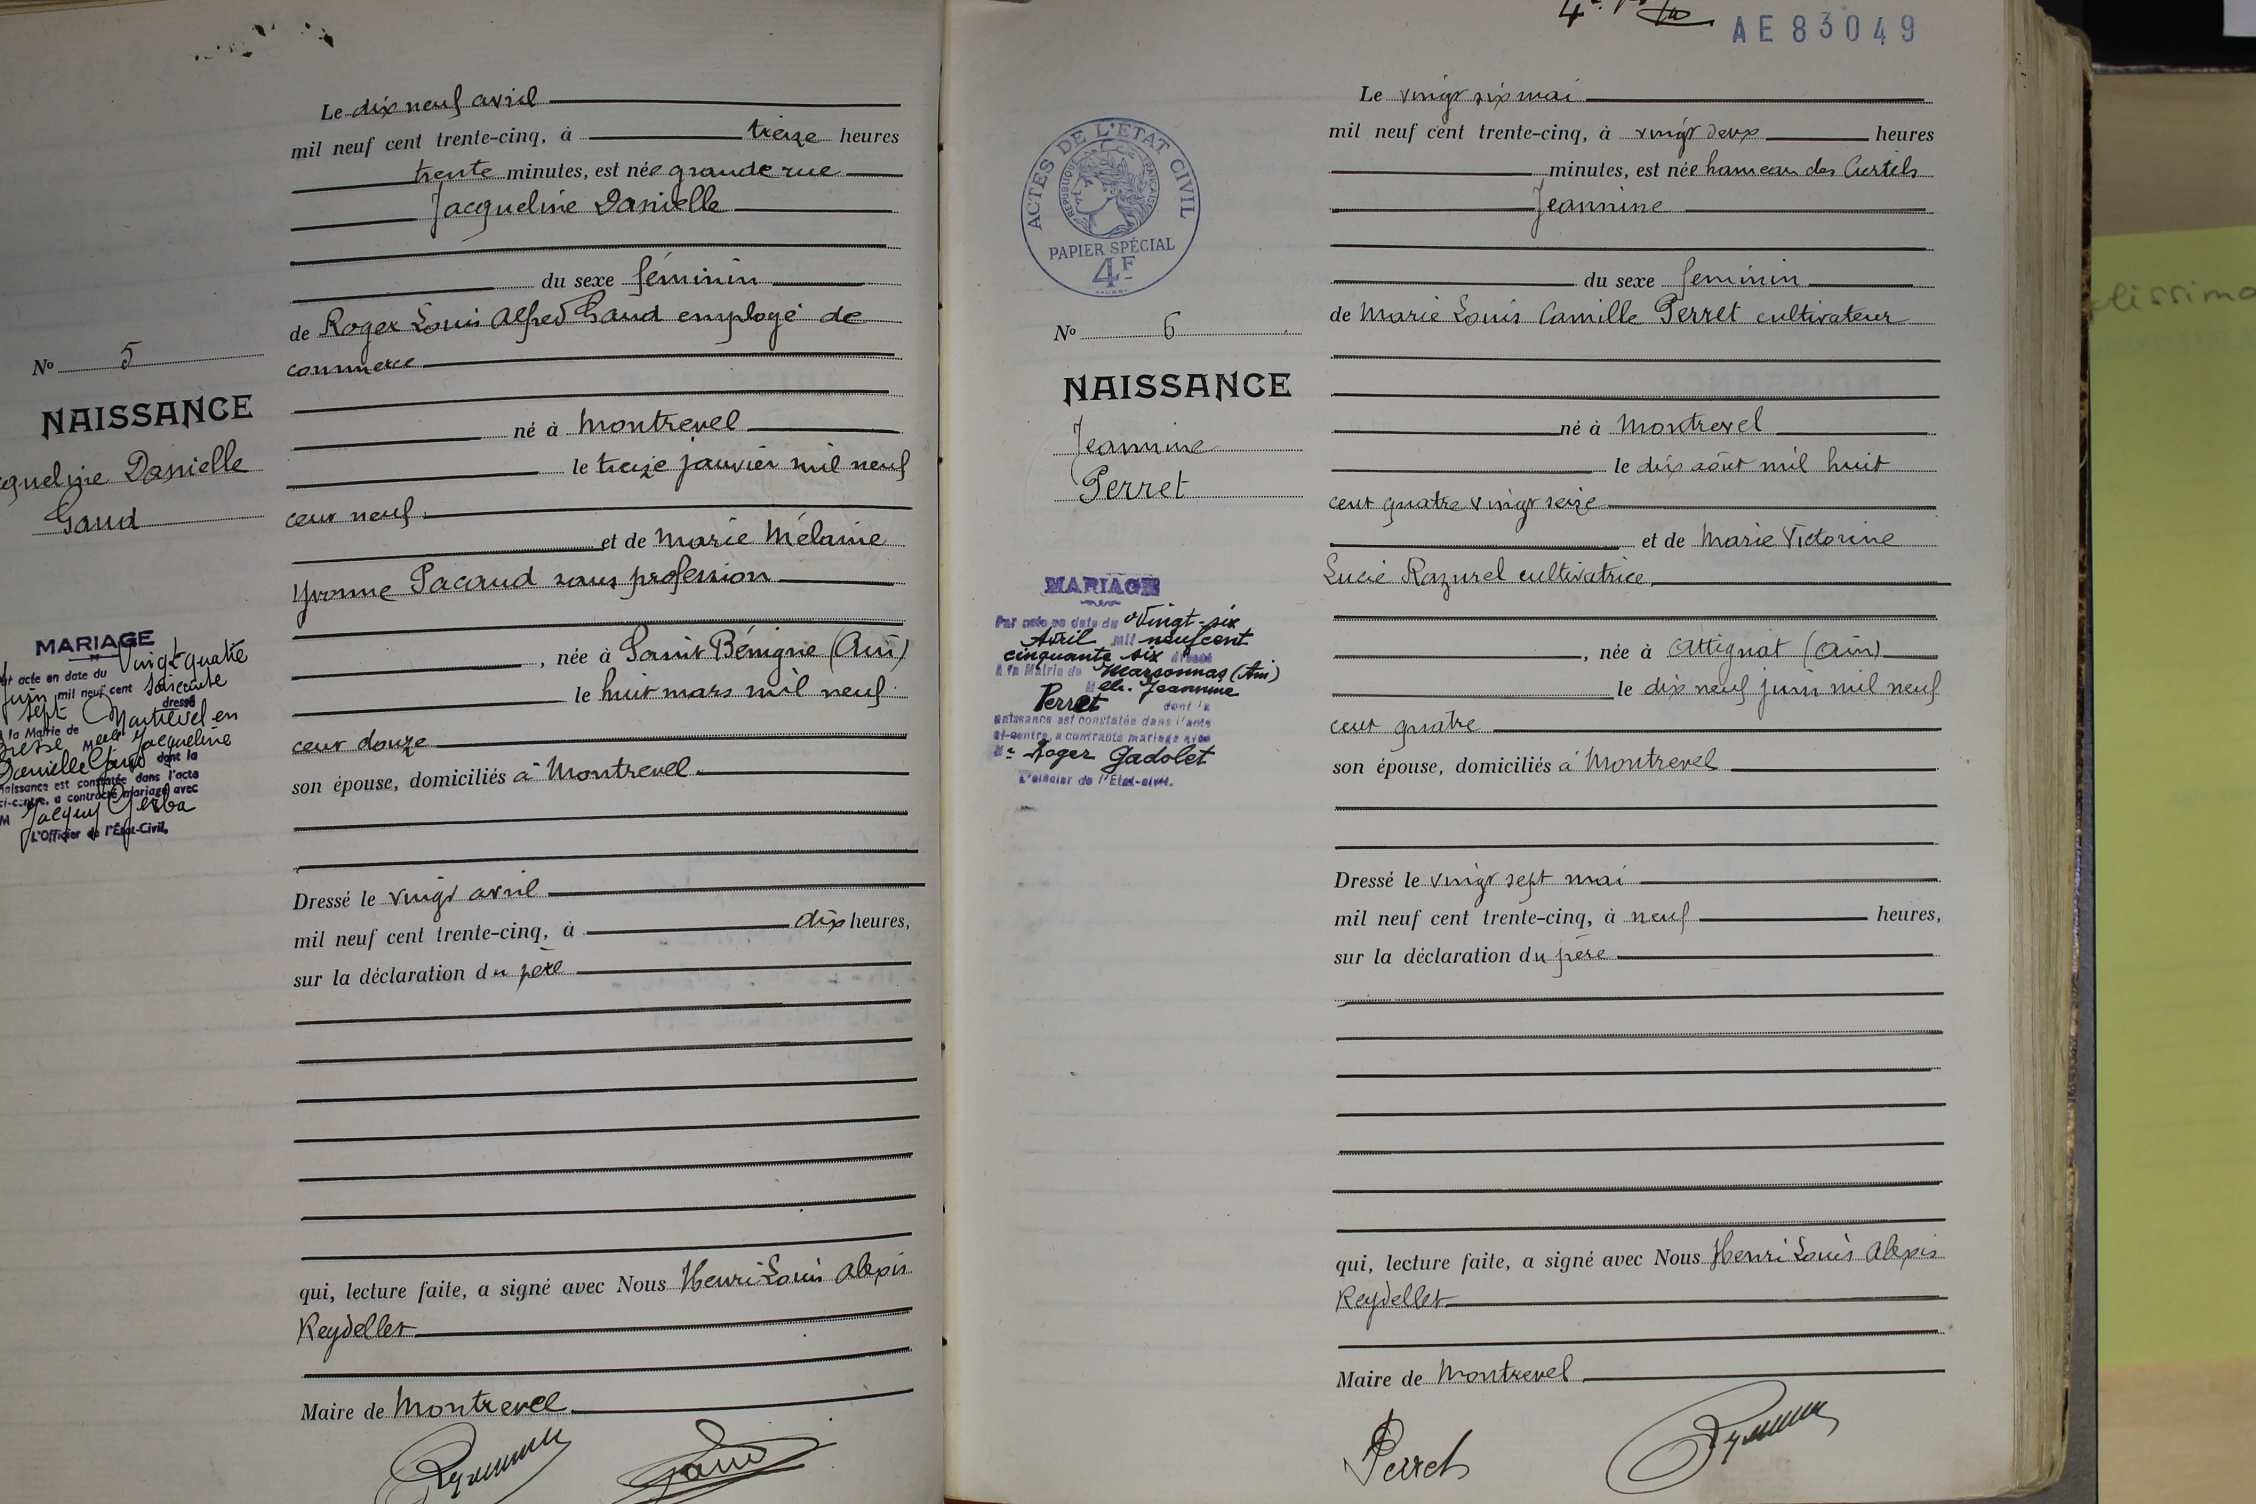 Le dix neuf avril
mil neuf cent trente-cinq, à treize heures
trente minutes, est née grande rue
Jacqueline Danielle
du sexe féminin
de Roger Louis Alfred Gaud employé de
commerce
né à Montrevel
le treize janvier mil neuf
cent neuf
et de Marie Mélanie
Yvonne Pacaud sans profession
, née à Saint Bénigne (Ain)
le huit mars mil neuf
cent douze
son épouse, domiciliés à Montrevel
Dressé le vingt avril
mil neuf cent trente-cinq, à dix heures,
sur la déclaration du père
qui, lecture faite, a signé avec Nous Henri Louis Alexis
Reydellet
Maire de Montrevel
Gaud
No 5
NAISSANCE
queline Danielle
Gaud
MARIAGE
acte en date du Vingt quatre
Juin mil neuf cent soixante
sept dressé
à la Mairie de Montrevel en
Bresse Melle Jacqueline
Danielle Gaud dont la
naissance est constatée dans l'acte
ci-contre, a contracté mariage avec
M Jacques Gerba
L'Officier de l'État-Civil,
AE 83049
ACTES DE L'ETAT CIVIL
REPUBLIQUE FRANÇAISE
PAPIER SPÉCIAL
4F
No 6
NAISSANCE
Jeannine
Perret
MARIAGE
Par acte en date du Vingt-six
Avril mil neuf cent
cinquante six dressé
à la Mairie de Marsonnas (Ain)
Melle. Jeannine
Perret dont la
naissance est constatée dans l'acte
ci-contre, a contracté mariage avec
Mr Roger Gadolet
L'officier de l'Etat-civil.
Le vingt six mai
mil neuf cent trente-cinq, à vingt deux heures
minutes, est née hameau des Curtils
Jeannine
du sexe feminin
de Marie Louis Camille Perret cultivateur
né à Montrevel
le dix août mil huit
cent quatre vingt seize
et de Marie Victorine
Lucie Razurel cultivatrice
, née à Attignat (Ain)
le dix neuf juin mil neuf
cent quatre
son épouse, domiciliés à Montrevel
Dressé le vingt sept mai
mil neuf cent trente-cinq, à neuf heures,
sur la déclaration du père
qui, lecture faite, a signé avec Nous Henri Louis Alexis
Reydellet
Maire de Montrevel
Perret